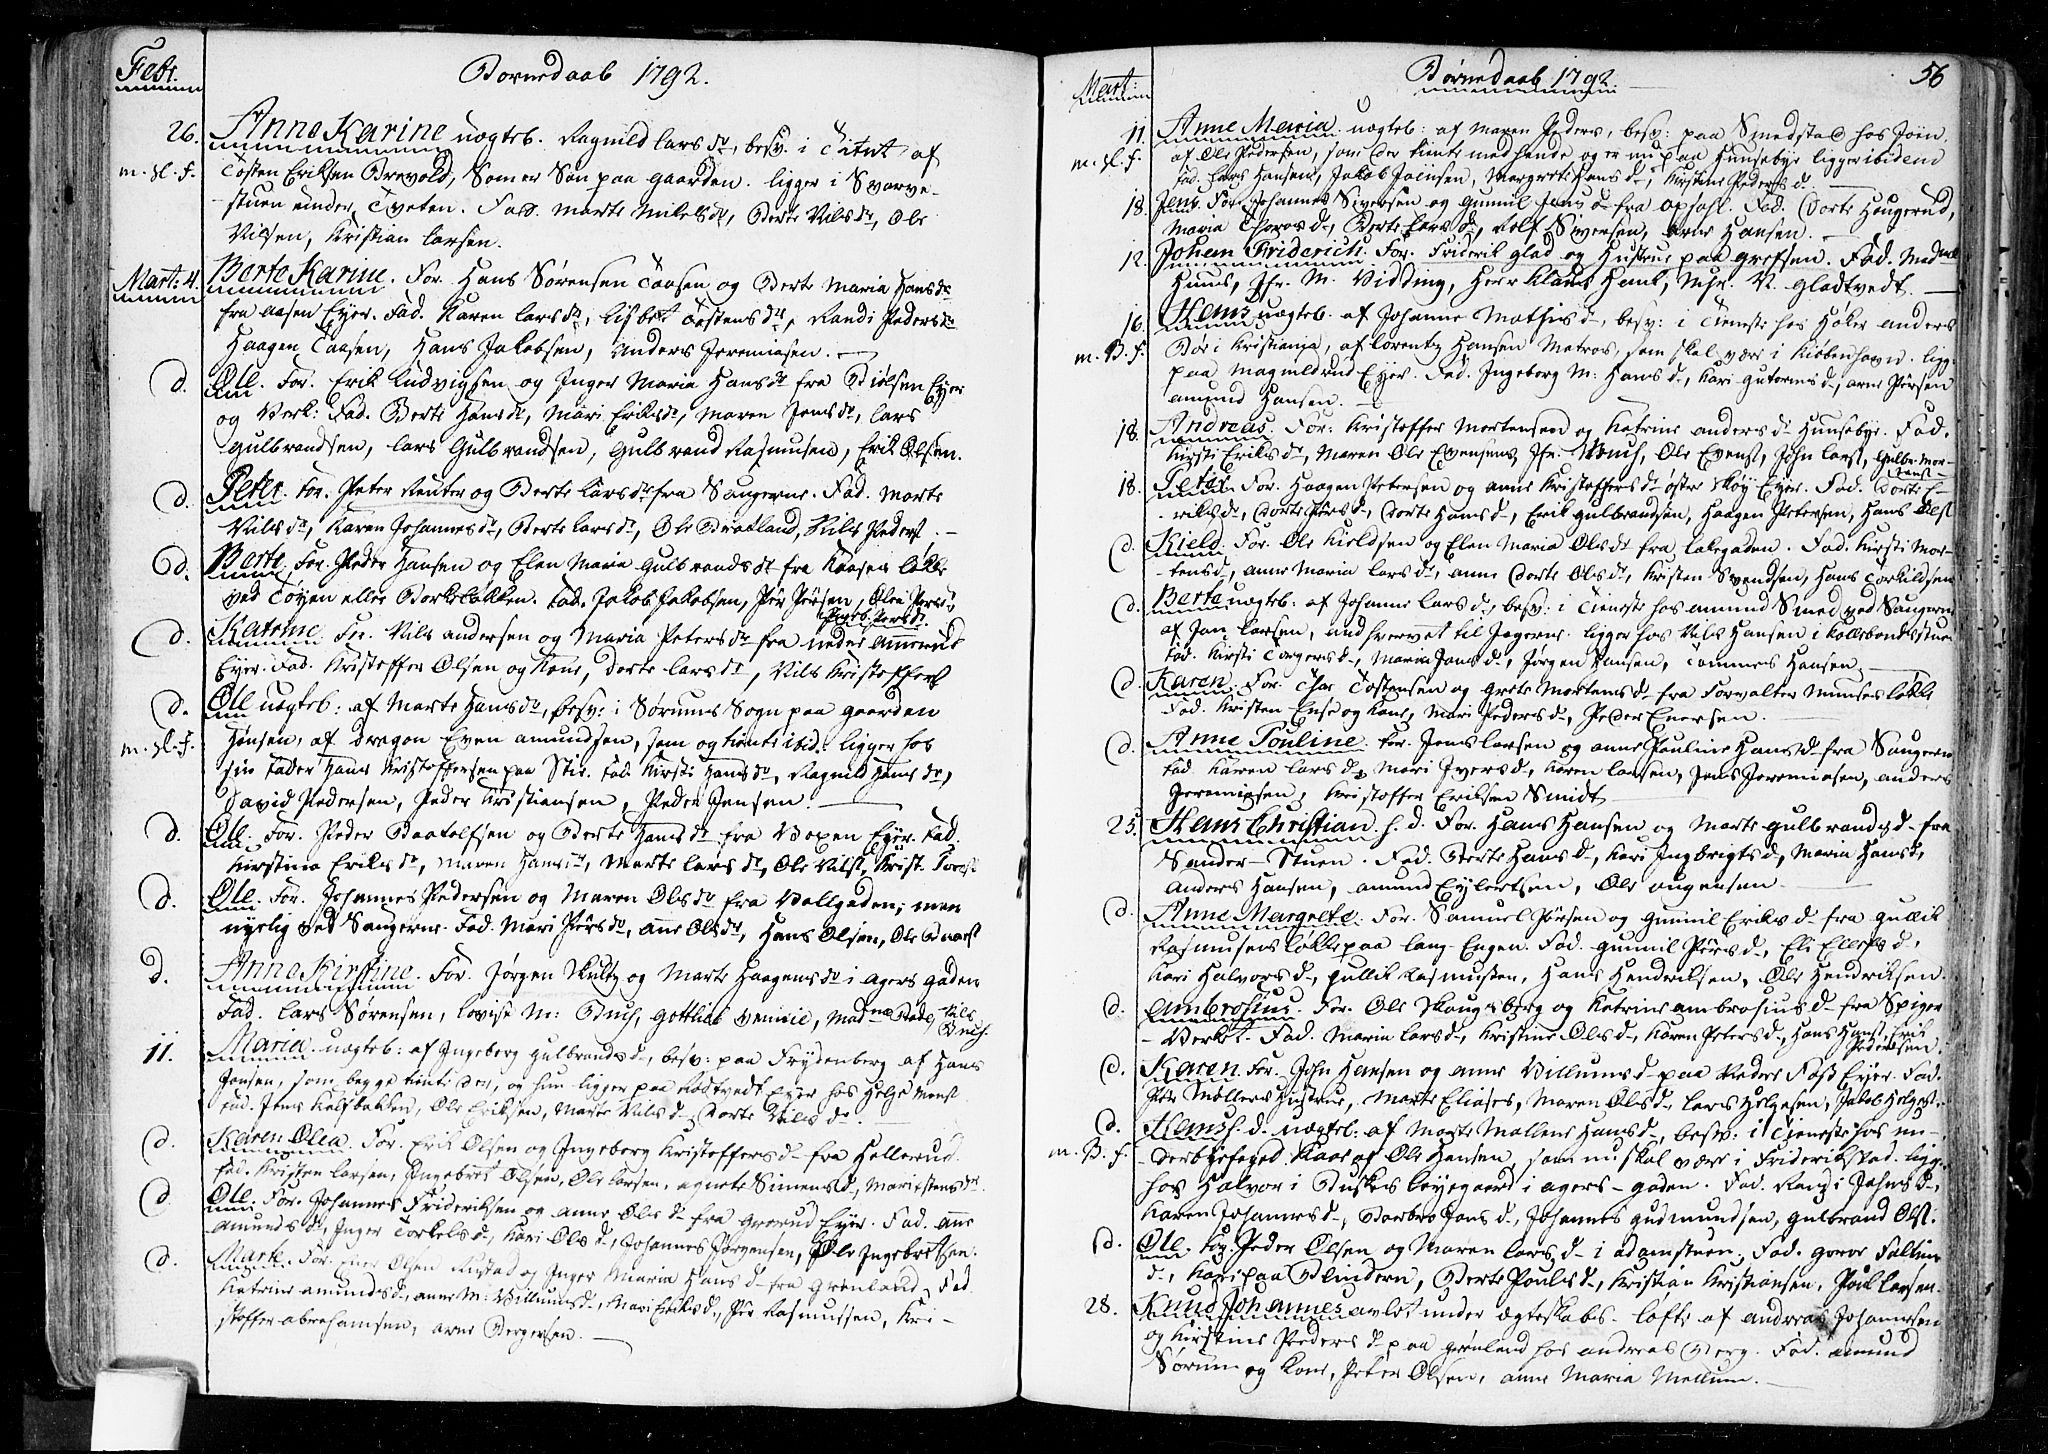 Febr.
Børnedaab 1792.
26. Anne Karine uægteb. Ragnild Lars Dr, besv. i af
m. sl. f. Tosten Eriksen Brevold, som er Søn paa gaarden. ligger i Svarve-
stuen under Tveten. Fad. Marte Nikels Dr, Berte Nils Dr, Ole
Nilsen, Kristian Larsen.
Mart: 4. Berte Karine. For. Hans Sørensen Taasen og Berte Maria Hans Dr
fra aasen Eyer. Fad. Karen Lars Dr, Lisbet Tostens Dr, Randi Peders Dr
Haagen Taasen, Hans Jakobsen, Anders Jeremiasen.
d. Ole. For. Erik Ludvigsen og Inger Maria Hans Dr fra Biølsen Eyer
og Verk: Fad. Berte Hans Dr, Mari Eriks Dr, Maren Jens Dr, Lars
Gulbrandsen, Lars Gulbrandsen, Gulbrand Rasmusen, Erik Olsen.
d. Peter. For. Peter Reuter og Berte Lars Dr fra Saugerne. Fad. Marte
Nils Dr, Karen Johannes Dr, Berte Lars Dr, Ole Bratland, Nils Peders.
d. Berte. For. Peder Hansen og Elen Maria Gulbrands Dr fra Løkke
ved Tøyen eller Borkeløkken. Fad. Jakob Jakobsen, Per Persen, Olea Pers Dr,
Ingeb. Pers Dr.
d. Katrine. For. Nils Andersen og Maria Peters Dr fra neder Ammerud
Eyer. Fad. Kristoffer Olsen og Kone, Dorte Lars Dr, Nils Kristoffers
d. Ole uægteb: af Marte Hans Dr, besv: i Sørums Sogn paa gaarden
m. sl. f. Hønsen, af dragon Even Amundsen, som og tiente ibid. ligger hos
sin Fader Hans Kristoffersen paa Stir. Fad. Kirsti Hans Dr, Ragnild Hans Dr,
David Pedersen, Peder Kristiansen, Peder Jensen.
d. Ole. For. Peder Baatolfsen og Berte Hans Dr fra Voxen Eyer. Fad.
Kirstina Eriks Dr, Maren Hans Dr, Marte Lars Dr, Ole Nilss, Krist. Toress
d. Ole. For. Johannes Pedersen og Maren Ols Dr fra Vollgaden; men
nyelig ved Saugerne. Fad. Mari Pers Dr, Anne Ols Dr, Hans Olsen, Ole
d. Anne Kirstine. For. Jørgen Skultz og Marte Haagens Dr i Agers gaden
Fad. Lars Sørensen, Lovise M: Buch, Gottlieb , Mad. Bade, Nils
Buch.
11. Maria. uægteb: af Ingeborg Gulbrands D., besv: paa Frydenberg af Hans
Jonsen, som begge tiente der, og hun ligger paa Rødtvedt Eyer hos Helge Monss
Fad. Jens Kalfbakken, Ole Eriksen, Marte Nils D., Dorte Nils Dr.
d. Karen Olea. For. Erik Olsen og Ingeborg Kristoffers D. fra Hellerud.
Fad. Kristen Larsen, Ingebret Olsen, Ole Larsen, Agnete Simens D., Mari Ostens Dr.
d. Ole. For. Johannes Frideriksen og Anne Ols D. fra Grorud Eyer. Fad. Anne
Amunds D., Inger Torkels D., Kari Ols D., Johannes Jørgensen, Ole Ingebretsen.
d. Marte. For. Iver Olsen Rustad og Inger Maria Hans D. fra Grønland. Fad.
Katrine Amunds D., Anne M: Villums D., Mari Eriks D., Per Rasmussen, Kri-
stoffer Abrahamsen, Arne Bergersen.
Mart:
Børnedaab 1792
56
11. Anne Maria uægteb: af Maren Peders, besv: paa Smedstad hos Joen
m. sl. f. af Ole Pedersen, som der tiente med hende og er nu paa Hunsebye. ligger ibidem
Fad. Lars Hansen, Jakob Joensen, Margrete Hans D., Kirstine Peders D.
18. Jens. For. Johannes Sivertsen og Gunnil Jens D. fra Opsahl. Fad. Dorte Haugerud,
Maria Thores D., Berte Lars D., Rolf Siversen, Arne Hansen.
12. Johan Friderich. For. Friderik Glad og Hustrue paa Grefsen. Fad. Madme
Huus, Jfr. M. Vidding, Herr Klaus Hank, Msr. N. Gladtvedt.
16. Hans uægteb. af Johanne Mathis D., besv: i Tieneste hos Høker Anders
m. B. f. Bør i Kristiania, af Lorentz Hansen Matros, som skal være i Kiøbenhavn. ligg.
paa Magnildrud Eyer. Fad. Ingeborg M: Hans D., Kari Gutorms D., Arne Persen
Amund Hansen.
18. Andreas. For: Kristoffer Mortensen og Katrine Anders D. Hunsebye. Fad.
Kirsti Eriks D., Maren Ole Evensens, Jfr: Munch, Ole Evens, John Lars, Gulbr. Mor-
tens
18. Peter. For. Haagen Petersen og Anne Kristoffers D. østre Skøy Eyer. Fad. Dorte E-
riks D., Dorte Pers D., Dorte Hans D., Erik Gulbrandsen, Haagen Petersen, Hans Ols
d. Kield. For. Ole Kieldsen og Elen Maria Ols D. fra Lakegaden. Fad. Kirsti Mor-
tens D., Anne Maria Lars D., Anne Dorte Ols D., Kristen Svendsen, Hans Torkildsen
d. Berte uægteb: af Johanne Lars D., besv: i Tieneste hos Amund Smed ved Saugerne
af Jan Larsen, andhvervet til Jægerne. ligger hos Nils Hansen i Kollebondestuen
Fad. Kirsti Torgers D., Maria Jans D., Jørgen Hansen, Tommes Hansen.
d. Karen. For. Thor Tostensen og Grete Mortens D. fra Forvalter Munses Løkke
Fad. Kristen Ense og Kone, Mari Peders D., Peder Enersen.
d. Anne Pouline. For. Jens Larsen og Anne Pauline Hans D. fra Saugerne
Fad. Karen Lars D., Mari Ivers D., Karen Larsen, Jens Jeremiasen, Anders
Jeremiasen, Kristoffer Eriksen Smidt
25. Hans Christian. h. d. For. Hans Hansen og Marte Gulbrands D. fra
Sander-Stuen. Fad. Berte Hans D., Kari Ingbrigts D., Maria Hans D.,
Anders Hansen, Amund Eylertsen, Ole Augensen.
d. Anne Margrete. For. Samuel Persen og Gunnil Eriks D. fra Gullik
Rasmusens Løkke paa Lang-Engen. Fad. Gunnil Pers D., Eli Ellefs D.,
Kari Halvors D., Gullik Rasmussen, Hans Hendriksen, Ole Hendriksen.
d. Ambrosius. For. Ole Skougsberg og Katrine Ambrosius D. fra Spiger
Verket. Fad. Maria Lars D., Kirstine Ols D., Karen Peters D., Hans Hanss, Erik
Pedersen.
d. Karen. For. John Hansen og Anne Villums D. paa Nedre Foss Eyer. Fad.
Per Møllers Hustrue, Marte Eliases, Maren Ols D., Lars Helgesen, Jakob Helgess.
d. Hans h. d. uægteb: af Marte Mallene Hans D., besv: i Tieneste hos un-
m. B. f. derbyefoged Kaas af Ole Hansen, som nu skal være i Friderikstad. ligg.
hos Halvor i Buskes løyegaard i Agers-gaden. Fad. Randi Johns D.,
Karen Johannes D., Barbro Jons D., Johannes Gudmundsen, Gulbrand Ols.
d. Ole. For. Peder Olsen og Maren Lars D. i Adamstuen. Fad. Goror Faltins
D., Kari paa Blindern, Berte Pouls D., Kristian Kristiansen, Poul Larsen.
28. Knud Johannes avlet under ægteskabs-løfte af Andreas Johannesen
og Kirstine Peders D. paa Grønland hos Andreas Berg. Fad. Amund
Sørum og Kone, Peter Olsen, Anne Maria Mellum.